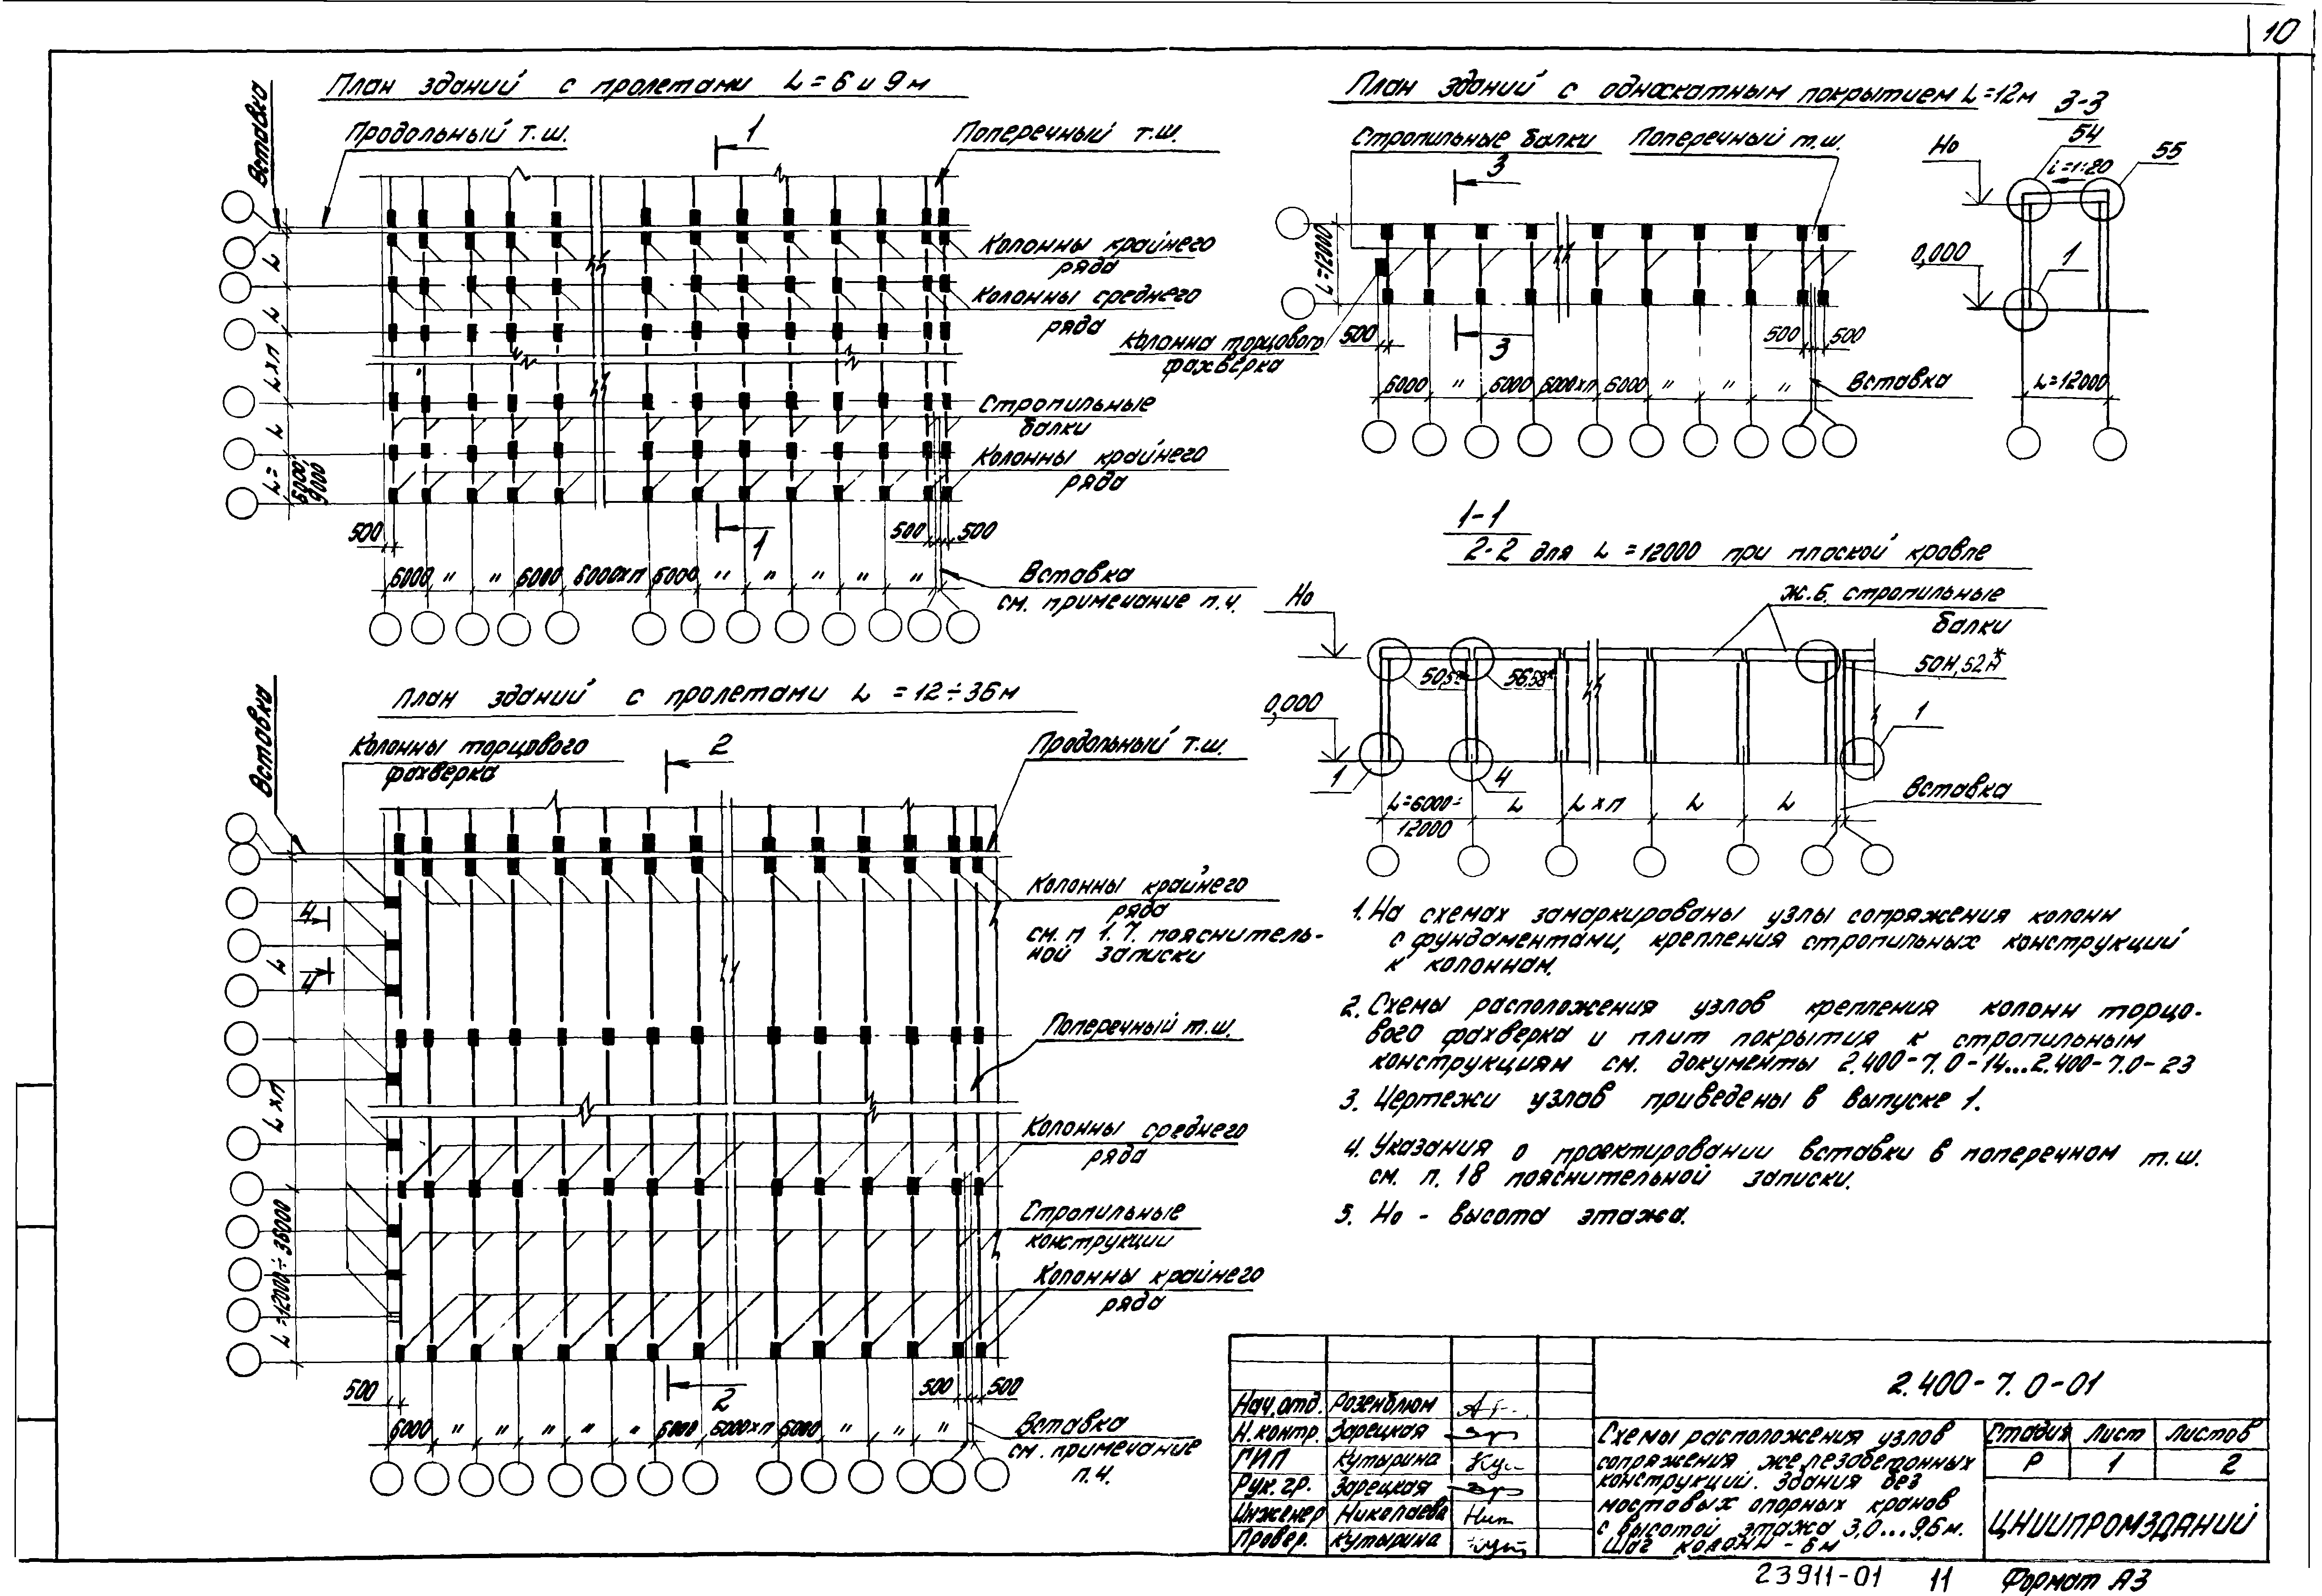 10
План зданий с пролетами L = 6 и 9 м
Вставка
Продольный т.ш.
1
Поперечный т.ш.
Колонны крайнего
ряда
Колонны среднего
ряда
Стропильные
балки
Колонны крайнего
ряда
L
L
L×п
L
L=
6000;
9000
500
1
500
500
6000 " " 6000 6000×п 6000 " " " " "
Вставка
см. примечание п.4.
План зданий с односкатным покрытием L=12м
Стропильные балки
Поперечный т.ш.
3
L=12000
Колонна торцового
фахверка
500
3
500
500
6000 " 6000 6000×п 6000 " " "
Вставка
3-3
54
55
Но
i=1:20
0,000
1
L=12000
1-1
2-2 для L = 12000 при плоской кровле
Но
ж.б. стропильные
балки
50н, 52н*
56,58*
0,000
1
4
1
L=6000÷
12000
L
L×п
L
L
Вставка
План зданий с пролетами L = 12÷36м
Вставка
Колонны торцового
фахверка
2
Продольный т.ш.
Колонны крайнего
ряда
см. п 1.7. пояснитель-
ной записки
4
4
L
Поперечный т.ш.
L×п
Колонны среднего
ряда
Стропильные
конструкции
Колонны крайнего
ряда
L=12000÷36000
500
2
500
500
6000 " " " " " 6000 6000×п 6000 " " "
Вставка
см. примечание
п.4.
1. На схемах замаркированы узлы сопряжения колонн
с фундаментами, крепления стропильных конструкций
к колоннам.
2. Схемы расположения узлов крепления колонн торцо-
вого фахверка и плит покрытия к стропильным
конструкциям см. документы 2.400-7.0-14...2.400-7.0-23
3. Чертежи узлов приведены в выпуске 1.
4. Указания о проектировании вставки в поперечном т.ш.
см. п. 18 пояснительной записки.
5. Но - высота этажа.
2.400-7.0-01
Нач.отд. Розенблюм
Н.контр. Зарецкая
ГИП Кутырина
Рук.гр. Зарецкая
Инженер Николаева
Провер. Кутырина
Схемы расположения узлов
сопряжения железобетонных
конструкций. Здания без
мостовых опорных кранов
с высотой этажа 3,0...9,6м.
Шаг колонн - 6м
Стадия Лист Листов
Р 1 2
ЦНИИПРОМЗДАНИЙ
23911-01 11 Формат А3